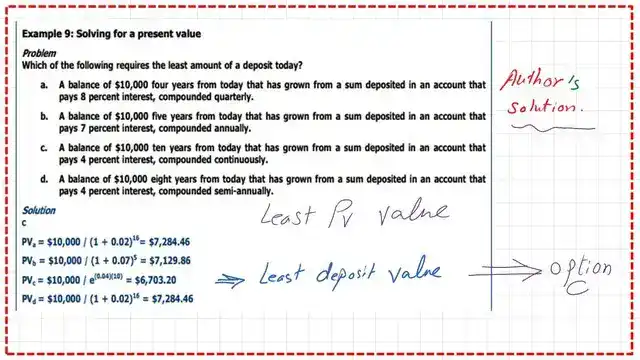 Example 9: Solving for a present value
Problem
Which of the following requires the least amount of a deposit today?
a. A balance of $10,000 four years from today that has grown from a sum deposited in an account that
pays 8 percent interest, compounded quarterly.
b. A balance of $10,000 five years from today that has grown from a sum deposited in an account that
pays 7 percent interest, compounded annually.
c. A balance of $10,000 ten years from today that has grown from a sum deposited in an account that
pays 4 percent interest, compounded continuously.
d. A balance of $10,000 eight years from today that has grown from a sum deposited in an account that
pays 4 percent interest, compounded semi-annually.
Solution
C
PVₐ = $10,000 / (1 + 0.02)¹⁶= $7,284.46
PV_b = $10,000 / (1 + 0.07)⁵ = $7,129.86
PV_c = $10,000 / e^(0.04)(10) = $6,703.20
PV_d = $10,000 / (1 + 0.02)¹⁶ = $7,284.46
Author's
Solution.
Least PV value
⇒ Least deposit value ⇒ option
C